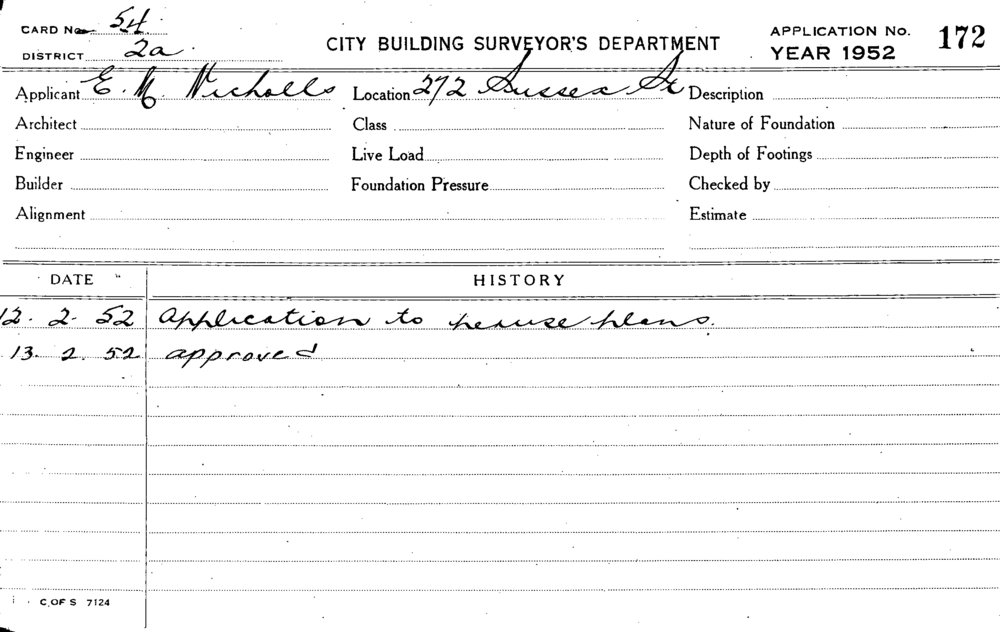 CARD No. 54.
DISTRICT 2a.
CITY BUILDING SURVEYOR'S DEPARTMENT
APPLICATION No. 172
YEAR 1952
Applicant E. M. Nicholls Location 272 Sussex St Description
Architect Class Nature of Foundation
Engineer Live Load Depth of Footings
Builder Foundation Pressure Checked by
Alignment Estimate
DATE HISTORY
12. 2. 52 Application to peruse plans.
13. 2. 52 approved
C. OF S 7124